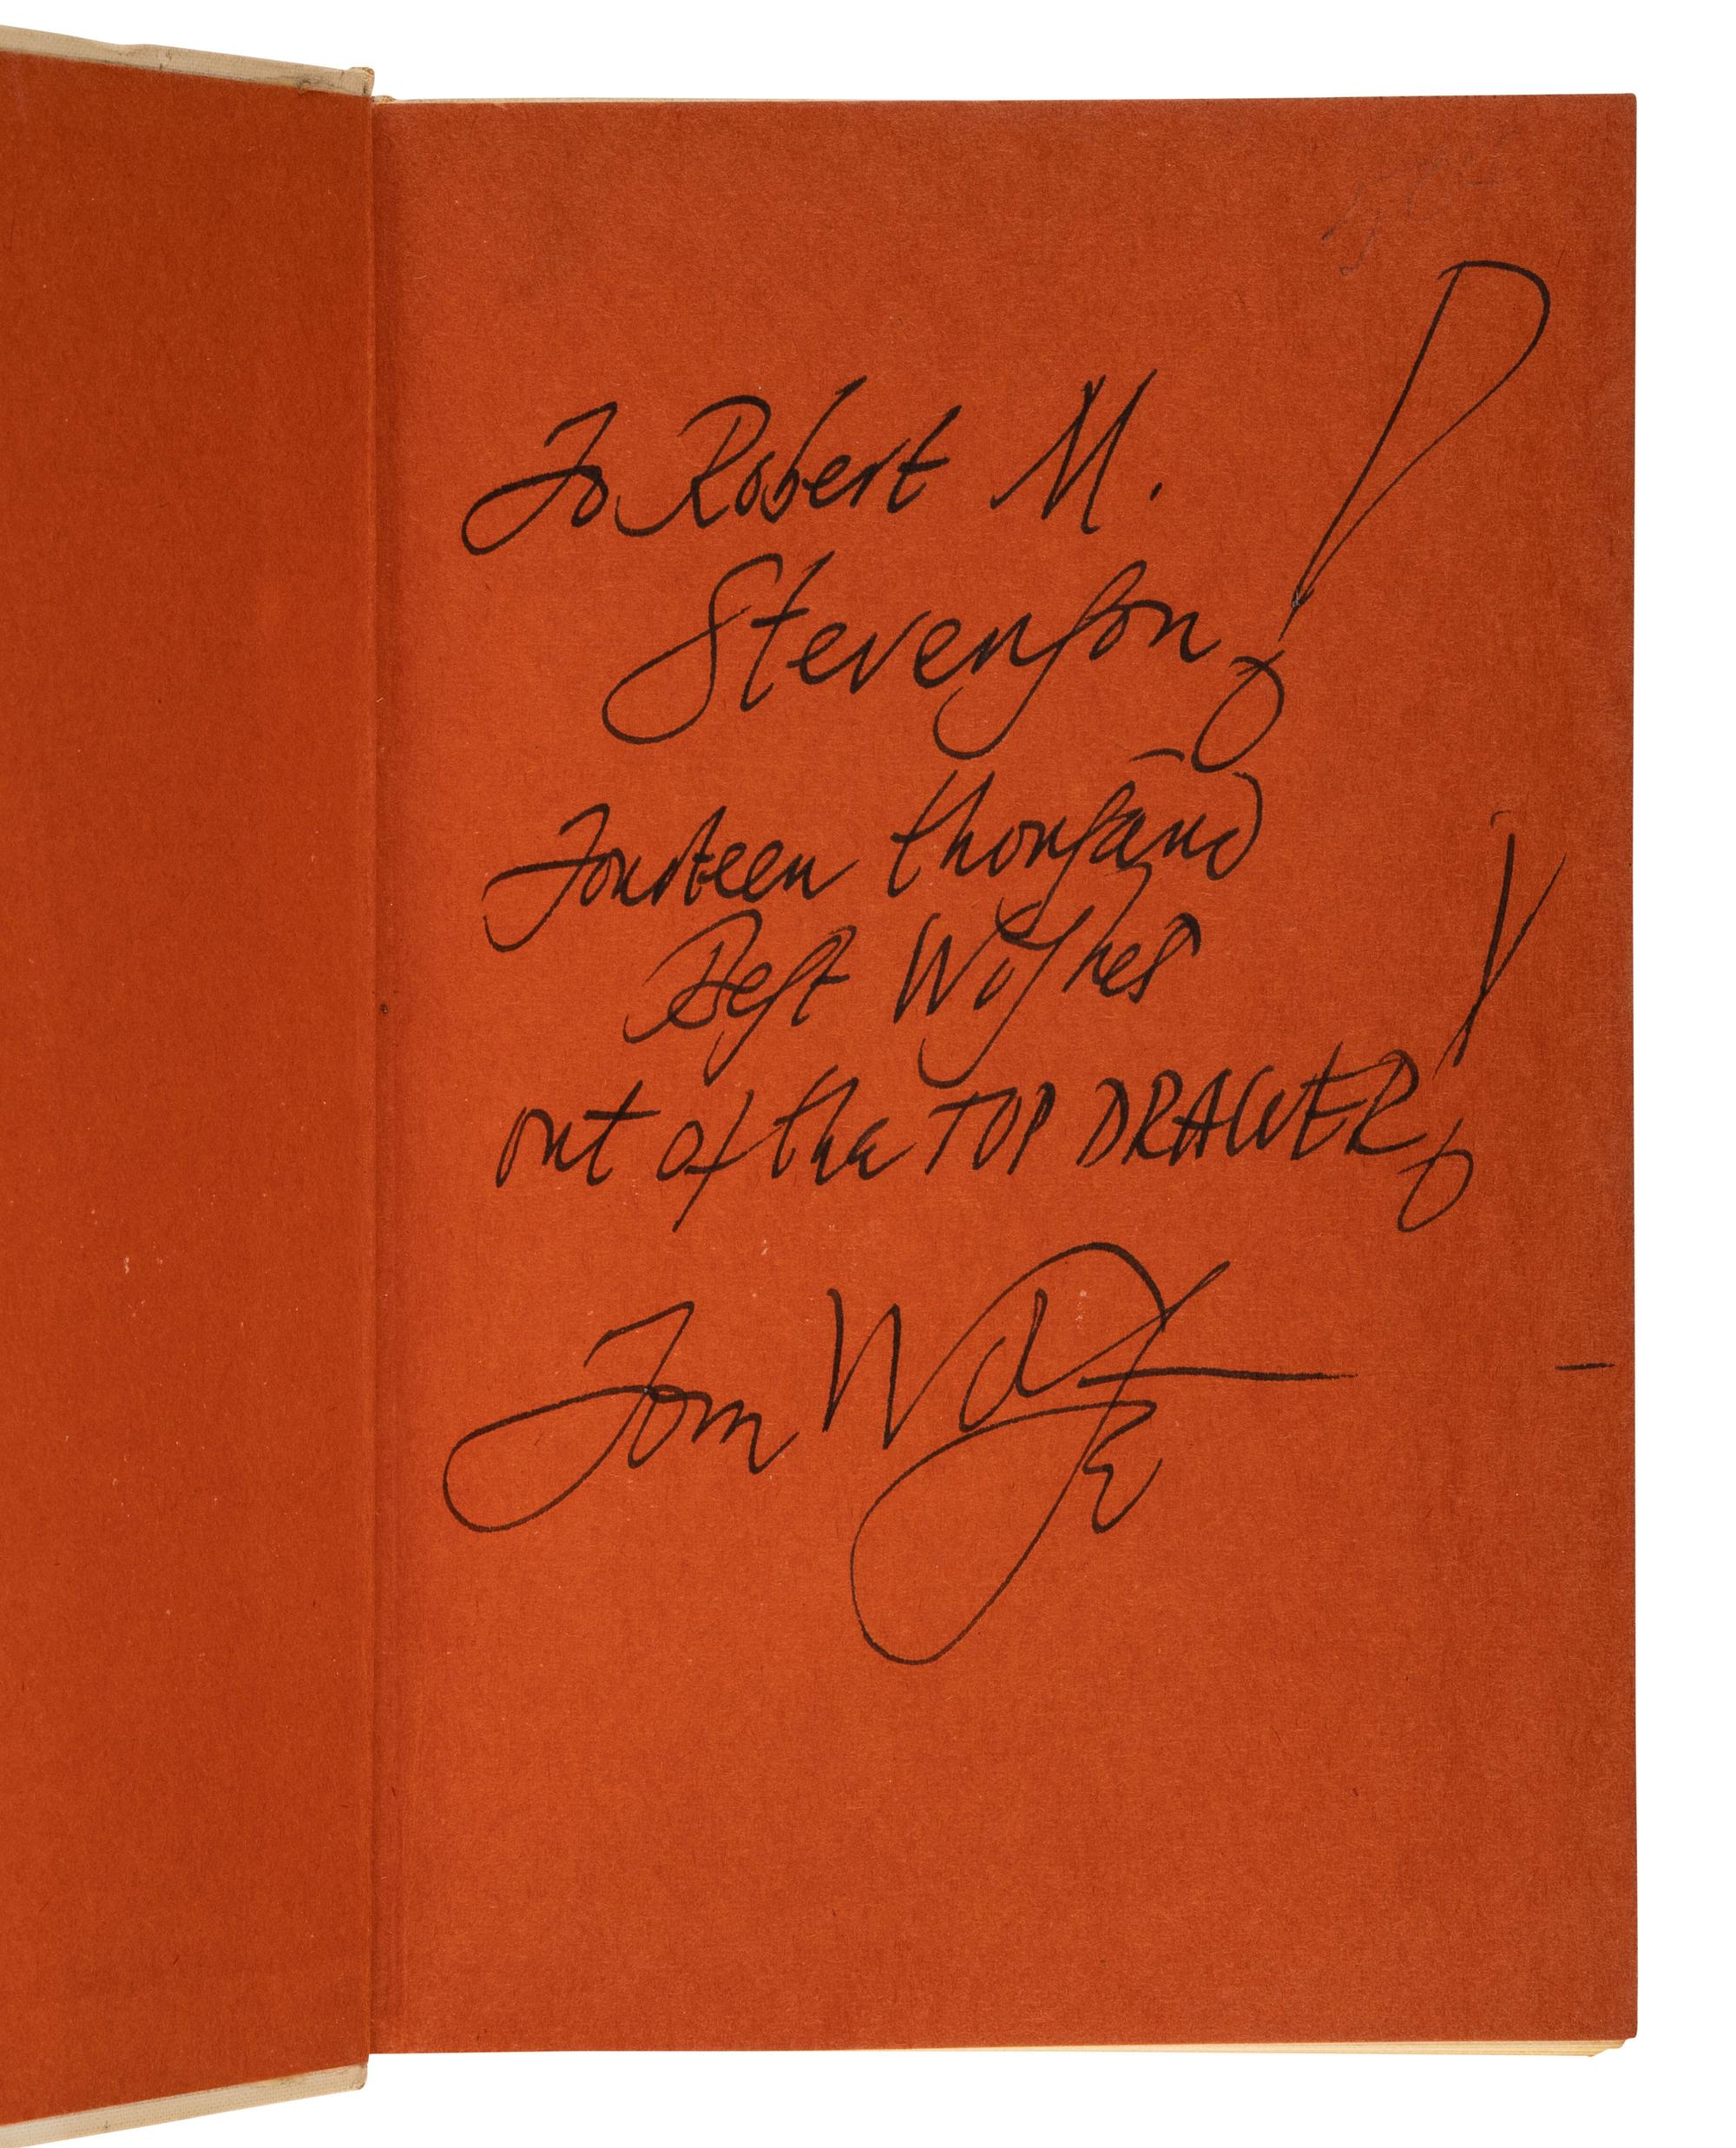 To Robert M.
Stevenson!
Fourteen thousand
Best Wishes
out of the TOP DRAWER!
Tom Wolfe